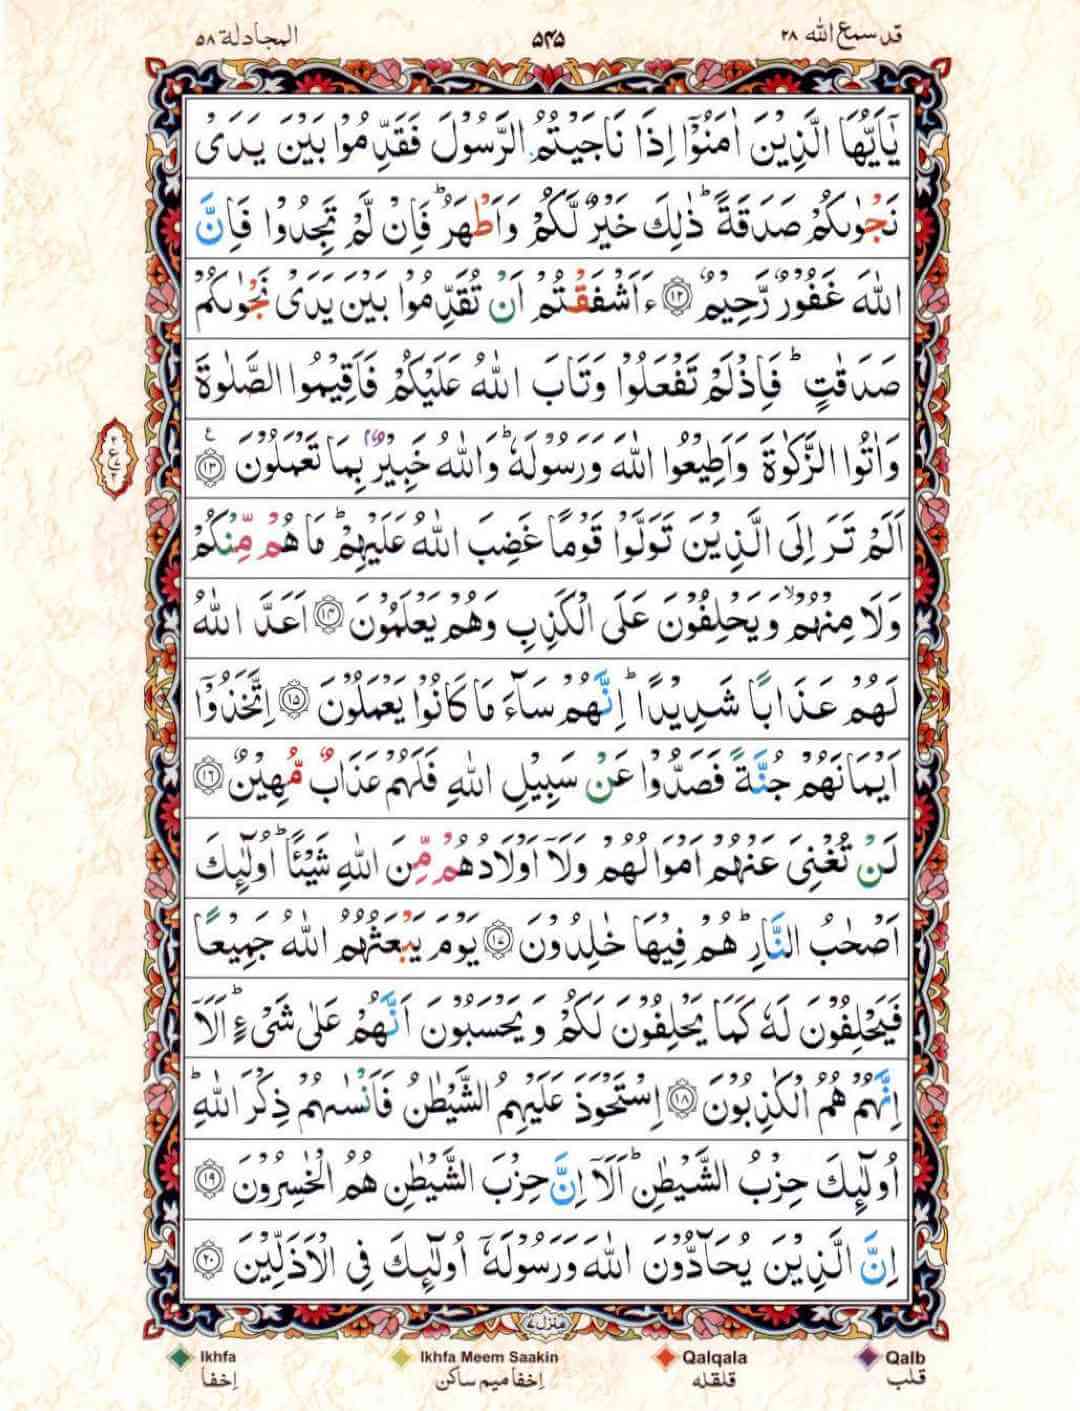 قد سمع الله ٢٨
۵۴۵
المجادلة ٥٨
يٰۤاَيُّهَا الَّذِيْنَ اٰمَنُوْۤا اِذَا نَاجَيْتُمُ الرَّسُوْلَ فَقَدِّمُوْا بَيْنَ يَدَىْ
نَجْوٰىكُمْ صَدَقَةً ؕ ذٰلِكَ خَيْرٌ لَّكُمْ وَاَطْهَرُ ؕ فَاِنْ لَّمْ تَجِدُوْا فَاِنَّ
اللّٰهَ غَفُوْرٌ رَّحِيْمٌ ۝١٢ ءَاَشْفَقْتُمْ اَنْ تُقَدِّمُوْا بَيْنَ يَدَىْ نَجْوٰىكُمْ
صَدَقٰتٍ ؕ فَاِذْ لَمْ تَفْعَلُوْا وَتَابَ اللّٰهُ عَلَيْكُمْ فَاَقِيْمُوا الصَّلٰوةَ
وَاٰتُوا الزَّكٰوةَ وَاَطِيْعُوا اللّٰهَ وَرَسُوْلَهٗ ؕ وَاللّٰهُ خَبِيْرٌۢ بِمَا تَعْمَلُوْنَ ۝١٣ ع
اَلَمْ تَرَ اِلَى الَّذِيْنَ تَوَلَّوْا قَوْمًا غَضِبَ اللّٰهُ عَلَيْهِمْ ؕ مَا هُمْ مِّنْكُمْ
وَلَا مِنْهُمْ ۙ وَيَحْلِفُوْنَ عَلَى الْكَذِبِ وَهُمْ يَعْلَمُوْنَ ۝١٤ اَعَدَّ اللّٰهُ
لَهُمْ عَذَابًا شَدِيْدًا ؕ اِنَّهُمْ سَآءَ مَا كَانُوْا يَعْمَلُوْنَ ۝١٥ اِتَّخَذُوْۤا
اَيْمَانَهُمْ جُنَّةً فَصَدُّوْا عَنْ سَبِيْلِ اللّٰهِ فَلَهُمْ عَذَابٌ مُّهِيْنٌ ۝١٦
لَنْ تُغْنِىَ عَنْهُمْ اَمْوَالُهُمْ وَلَاۤ اَوْلَادُهُمْ مِّنَ اللّٰهِ شَيْـًٔا ؕ اُولٰٓئِكَ
اَصْحٰبُ النَّارِ ؕ هُمْ فِيْهَا خٰلِدُوْنَ ۝١٧ يَوْمَ يَبْعَثُهُمُ اللّٰهُ جَمِيْعًا
فَيَحْلِفُوْنَ لَهٗ كَمَا يَحْلِفُوْنَ لَكُمْ وَيَحْسَبُوْنَ اَنَّهُمْ عَلٰى شَىْءٍ ؕ اَلَاۤ
اِنَّهُمْ هُمُ الْكٰذِبُوْنَ ۝١٨ اِسْتَحْوَذَ عَلَيْهِمُ الشَّيْطٰنُ فَاَنْسٰىهُمْ ذِكْرَ اللّٰهِ ؕ
اُولٰٓئِكَ حِزْبُ الشَّيْطٰنِ ؕ اَلَاۤ اِنَّ حِزْبَ الشَّيْطٰنِ هُمُ الْخٰسِرُوْنَ ۝١٩
اِنَّ الَّذِيْنَ يُحَآدُّوْنَ اللّٰهَ وَرَسُوْلَهٗۤ اُولٰٓئِكَ فِى الْاَذَلِّيْنَ ۝٢٠
منزل ٧
Ikhfa Ikhfa Meem Saakin Qalqala Qalb
اِخفا اِخفا ميم ساكن قلقله قلب